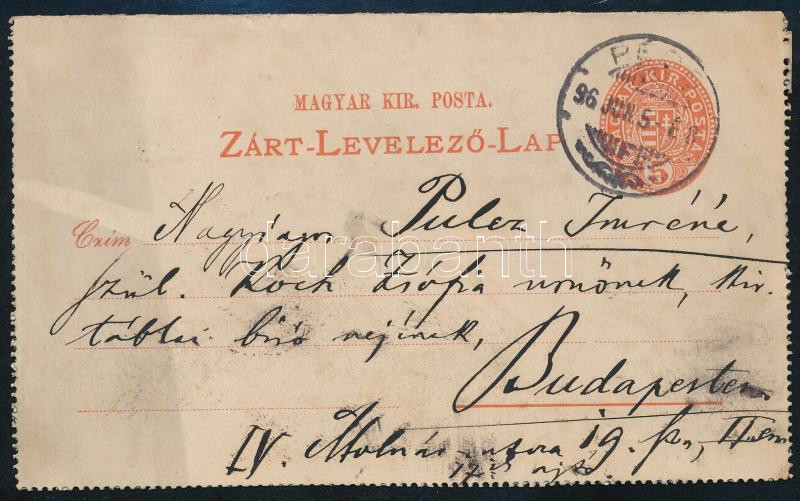 MAGYAR KIR. POSTA.
ZÁRT-LEVELEZŐ-LAP
PÉC
96 JUN. 5
MAGYAR KIR. POSTA
5
Czim Nagyságos Pulcz Imréné,
szül. Koch Zsófia urnőnek, kir.
táblai biró nejének,
Budapesten
IV. Molnár utcza 19. sz., II em
17 ajtó
darabanth